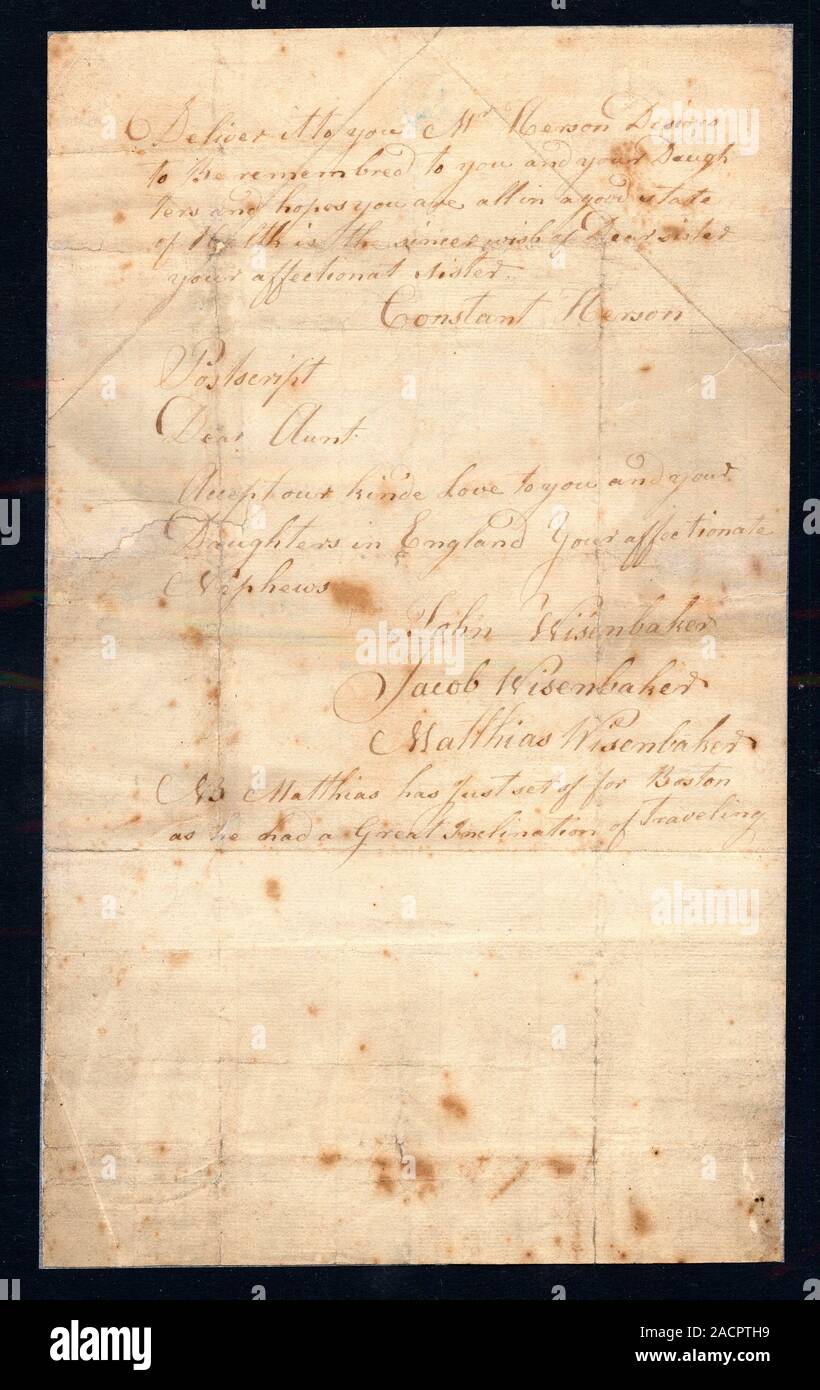 Deliver it to you Mr Herson Desires
to Be remembred to you and your Daugh
ters and hopes you are all in a good state
of Helth is the sincer wish of Dear sister
your affectionat sister
Constant Herson
Postscript
Dear Aunt
Accept our kinde Love to you and your
Daughters in England Your affectionate
Nephews
John Wisenbaker
Jacob Wisenbaker
Matthias Wisenbaker
NB Matthias has Just set of for Boston
as he had a Great Inclination of Traveling
alamy
Image ID: 2ACPTH9
www.alamy.com